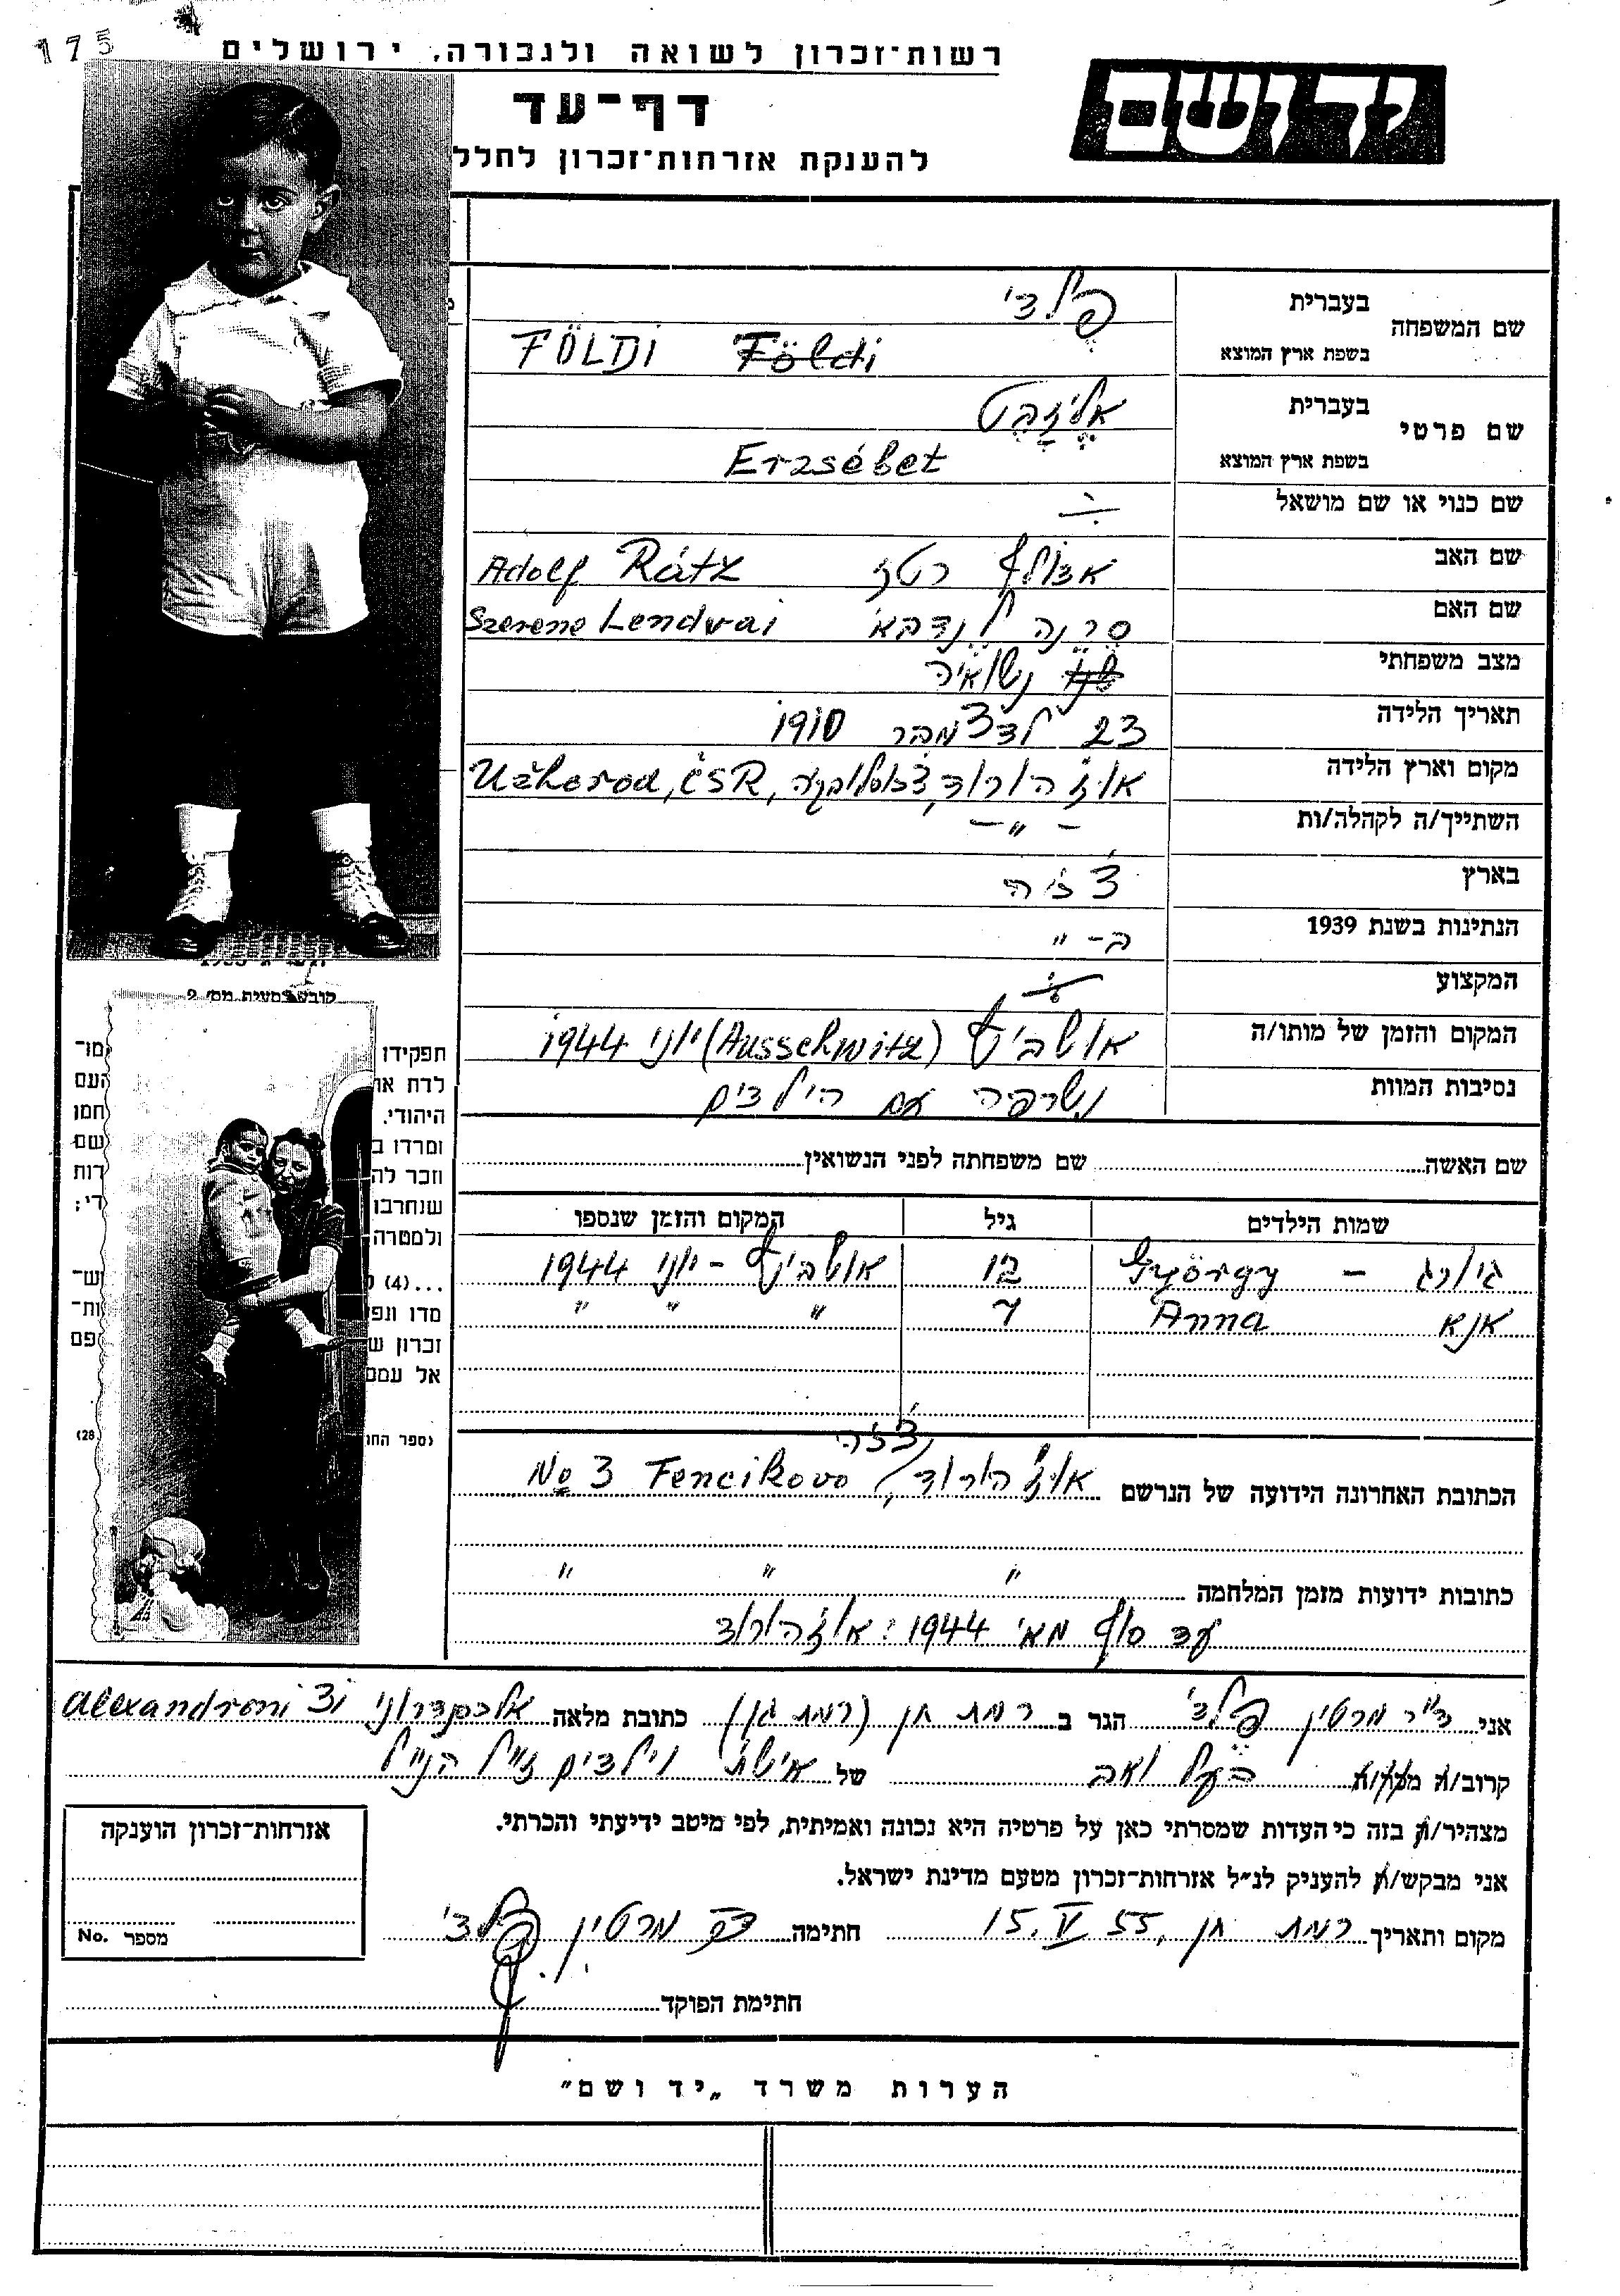 175
רשות־זכרון לשואה ולגבורה, ירושלים
יד ושם
דף־עד
להענקת אזרחות־זכרון לחלל
שם המשפחה
בעברית
פלדי
בשפת ארץ המוצא
FÖLDI Földi
שם פרטי
בעברית
אליזבט
בשפת ארץ המוצא
Erzsébet
שם כנוי או שם מושאל
שם האב אדולף רטז Adolf Rátz
שם האם סרנה לנדבאי Szerene Lendvai
מצב משפחתי נשואיה
תאריך הלידה 23 לדצמבר 1910
מקום וארץ הלידה אוז'הורוד, Užhorod, ČSR
השתייך/ה לקהלה/ות – " –
בארץ צ'זיה
הנתינות בשנת 1939 ב– "
המקצוע
המקום והזמן של מותו/ה אושביץ (Ausschwitz) יוני 1944
נסיבות המוות נשרפה עם הילדים
שם האשה שם משפחתה לפני הנשואין
שמות הילדים גיל המקום והזמן שנספו
גיורג – György 12 אושביץ – יוני 1944
אנא Anna 7 " " "
הכתובת האחרונה הידועה של הנרשם אוז'הורוד, No 3 Fencikovo
כתובות ידועות מזמן המלחמה " " "
עד סוף מאי 1944: אוזהורוד
קובע
תפקידו
לדת או
היהודי.
ומרדו ב
וזכר לה
שנחרבו
ולמטרה
...(4)
מדו ונפ
זכרון ש
אל עמם
(ספר החו
מו־
העם
חמו
שם
דות
די;
וש־
ות־
פם
28)
אני ד"ר מרטין פלדי הגר ב רמת חן (רמת גן) כתובת מלאה אלכסנדרוני 13 Alexandroni
קרוב/ה בעל ואב של אישת וילדים ז"ל הנ"ל
מצהיר/ה בזה כי העדות שמסרתי כאן על פרטיה היא נכונה ואמיתית, לפי מיטב ידיעתי והכרתי.
אני מבקש/ת להעניק לנ״ל אזרחות־זכרון מטעם מדינת ישראל.
מקום ותאריך רמת חן, 15. V 55 חתימה מרטין פלדי
חתימת הפוקד
אזרחות־זכרון הוענקה
מספר No.
הערות משרד „יד ושם"